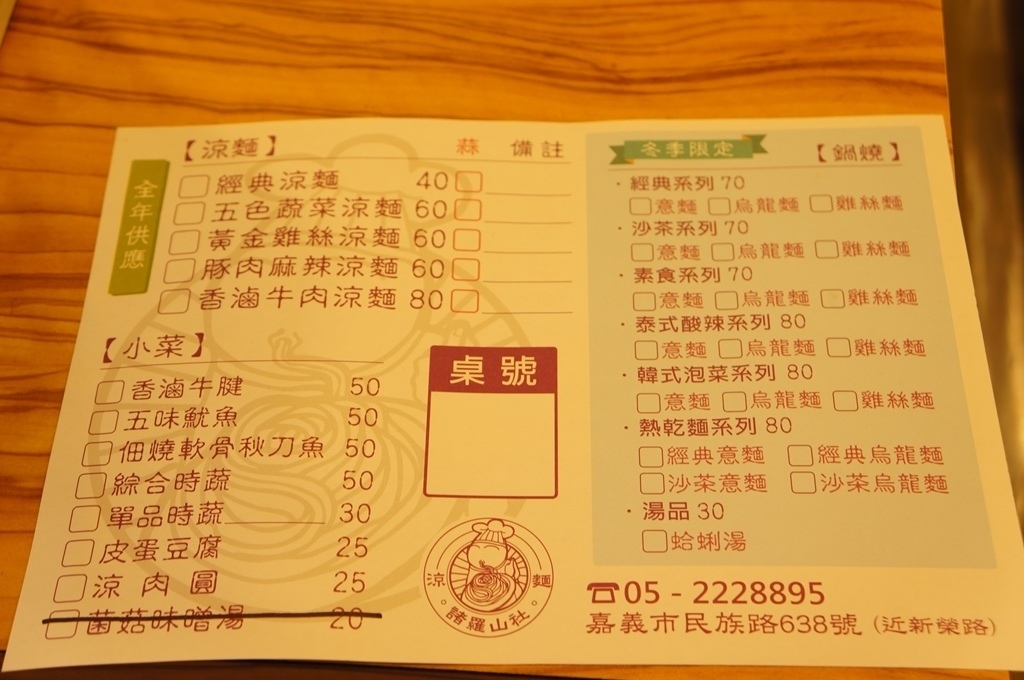 全年供應
【涼麵】 蒜 備註
經典涼麵 40
五色蔬菜涼麵 60
黃金雞絲涼麵 60
豚肉麻辣涼麵 60
香滷牛肉涼麵 80
【小菜】
香滷牛腱 50
五味魷魚 50
佃燒軟骨秋刀魚 50
綜合時蔬 50
單品時蔬 30
皮蛋豆腐 25
涼肉圓 25
菌菇味噌湯 20
桌號
涼麵
諸羅山社
冬季限定 【鍋燒】
·經典系列 70
意麵 烏龍麵 雞絲麵
·沙茶系列 70
意麵 烏龍麵 雞絲麵
·素食系列 70
意麵 烏龍麵 雞絲麵
·泰式酸辣系列 80
意麵 烏龍麵 雞絲麵
·韓式泡菜系列 80
意麵 烏龍麵 雞絲麵
·熱乾麵系列 80
經典意麵 經典烏龍麵
沙茶意麵 沙茶烏龍麵
·湯品 30
蛤蜊湯
☎05 - 2228895
嘉義市民族路638號 (近新榮路)